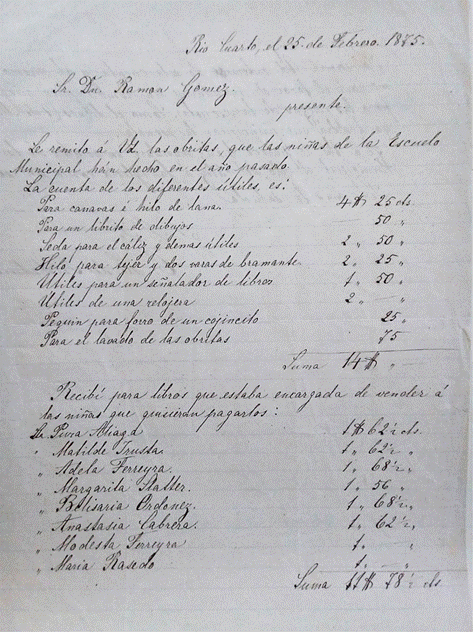 Rio Cuarto, el 25. de Febrero. 1875.
Sr. Dn. Ramon Gomez.
presente.
Le remito á Vd. las obritas, que las niñas de la Escuela
Municipal hán hecho en el año pasado.
La cuenta de los diferentes útiles, es:
Para canavas é hilo de lana. 4 $ 25 cts.
Para un librito de dibujos 50 "
Seda para el cáliz y demas útiles 2 " 50 "
Hilo para tejer y dos varas de bramante. 2 " 25 "
Utiles para un señalador de libros 1 " 50 "
Utiles de una relojera 2 " — "
Pequin para forro de un cojincito 25 "
Para el lavado de las obritas 75
Suma 14 $ "
Recibí para libros que estaba encargada de vender á
las niñas que quisieran pagarlos:
La Pura Aliaga 1 $ 62½ cts.
" Matilde 1 " 62½ "
" Adela Ferreyra. 1 " 68½ "
" Margarita 1 " 56 "
" Belisaria Ordoñez. 1 " 68½ "
" Anastasia Cabrera. 1 " 62½ "
" Modesta Ferreyra 1 "
" Maria 1 "
Suma 11 $ 78½ cts